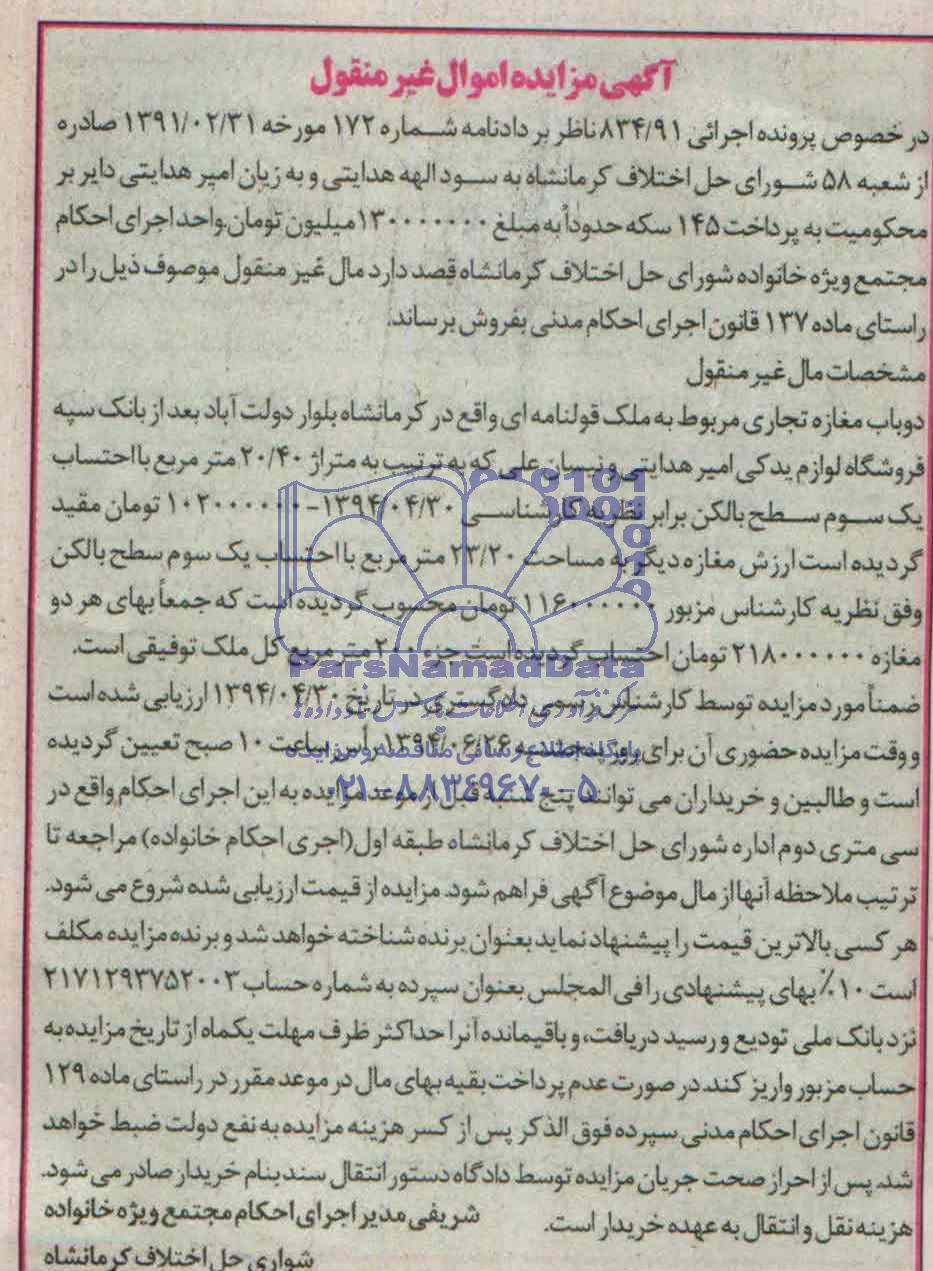 آگهی مزایده اموال غیر منقول
در خصوص پرونده اجرائی ۸۳۴/۹۱ ناظر بر دادنامه شماره ۱۷۲ مورخه ۱۳۹۱/۰۲/۳۱ صادره
از شعبه ۵۸ شورای حل اختلاف کرمانشاه به سود الهه هدایتی و به زیان امیر هدایتی دایر بر
محکومیت به پرداخت ۱۴۵ سکه حدوداً به مبلغ ۱۳۰۰۰۰۰۰۰ میلیون تومان.واحد اجرای احکام
مجتمع ویژه خانواده شورای حل اختلاف کرمانشاه قصد دارد مال غیر منقول موصوف ذیل را در
راستای ماده ۱۳۷ قانون اجرای احکام مدنی بفروش برساند.
مشخصات مال غیر منقول
دوباب مغازه تجاری مربوط به ملک قولنامه ای واقع در کرمانشاه بلوار دولت آباد بعد از بانک سپه
فروشگاه لوازم یدکی امیر هدایتی و نیسان علی که به ترتیب به متراژ ۲۰/۴۰ متر مربع بااحتساب
یک سوم سطح بالکن برابر نظریه کارشناسی ۱۳۹۴/۰۴/۳۰-۱۰۲۰۰۰۰۰۰ تومان مقید
گردیده است ارزش مغازه دیگر به مساحت ۲۳/۲۰ متر مربع با احتساب یک سوم سطح بالکن
وفق نظریه کارشناس مزبور ۱۱۶۰۰۰۰۰۰ تومان محسوب گردیده است که جمعاً بهای هر دو
مغازه ۲۱۸۰۰۰۰۰۰ تومان احتساب گردیده است جزء ۲۰۰ متر مربع کل ملک توقیفی است.
ParsNamadData
ضمناً مورد مزایده توسط کارشناس رسمی دادگستری در تاریخ ۱۳۹۴/۰۴/۳۰ ارزیابی شده است
و وقت مزایده حضوری آن برای روز پنجشنبه ۱۳۹۴/۰۶/۲۶ رأس ساعت ۱۰ صبح تعیین گردیده
پایگاه اطلاع رسانی مناقصه و مزایده
است و طالبین و خریداران می توانند پنج شنبه قبل از موعد مزایده به این اجرای احکام واقع در
۰۲۱-۸۸۳۴۹۶۷۰-۵
سی متری دوم اداره شورای حل اختلاف کرمانشاه طبقه اول(اجری احکام خانواده) مراجعه تا
ترتیب ملاحظه آنها از مال موضوع آگهی فراهم شود. مزایده از قیمت ارزیابی شده شروع می شود.
هر کسی بالاترین قیمت را پیشنهاد نماید بعنوان برنده شناخته خواهد شد و برنده مزایده مکلف
است ۱۰٪ بهای پیشنهادی را فی المجلس بعنوان سپرده به شماره حساب ۲۱۷۱۲۹۳۷۵۲۰۰۳
نزد بانک ملی تودیع و رسید دریافت، و باقیمانده آنرا حداکثر ظرف مهلت یکماه از تاریخ مزایده به
حساب مزبور واریز کند. در صورت عدم پرداخت بقیه بهای مال در موعد مقرر در راستای ماده ۱۲۹
قانون اجرای احکام مدنی سپرده فوق الذکر پس از کسر هزینه مزایده به نفع دولت ضبط خواهد
شد. پس از احراز صحت جریان مزایده توسط دادگاه دستور انتقال سند بنام خریدار صادر می شود.
هزینه نقل و انتقال به عهده خریدار است.
شریفی مدیر اجرای احکام مجتمع ویژه خانواده
شواری حل اختلاف کرمانشاه